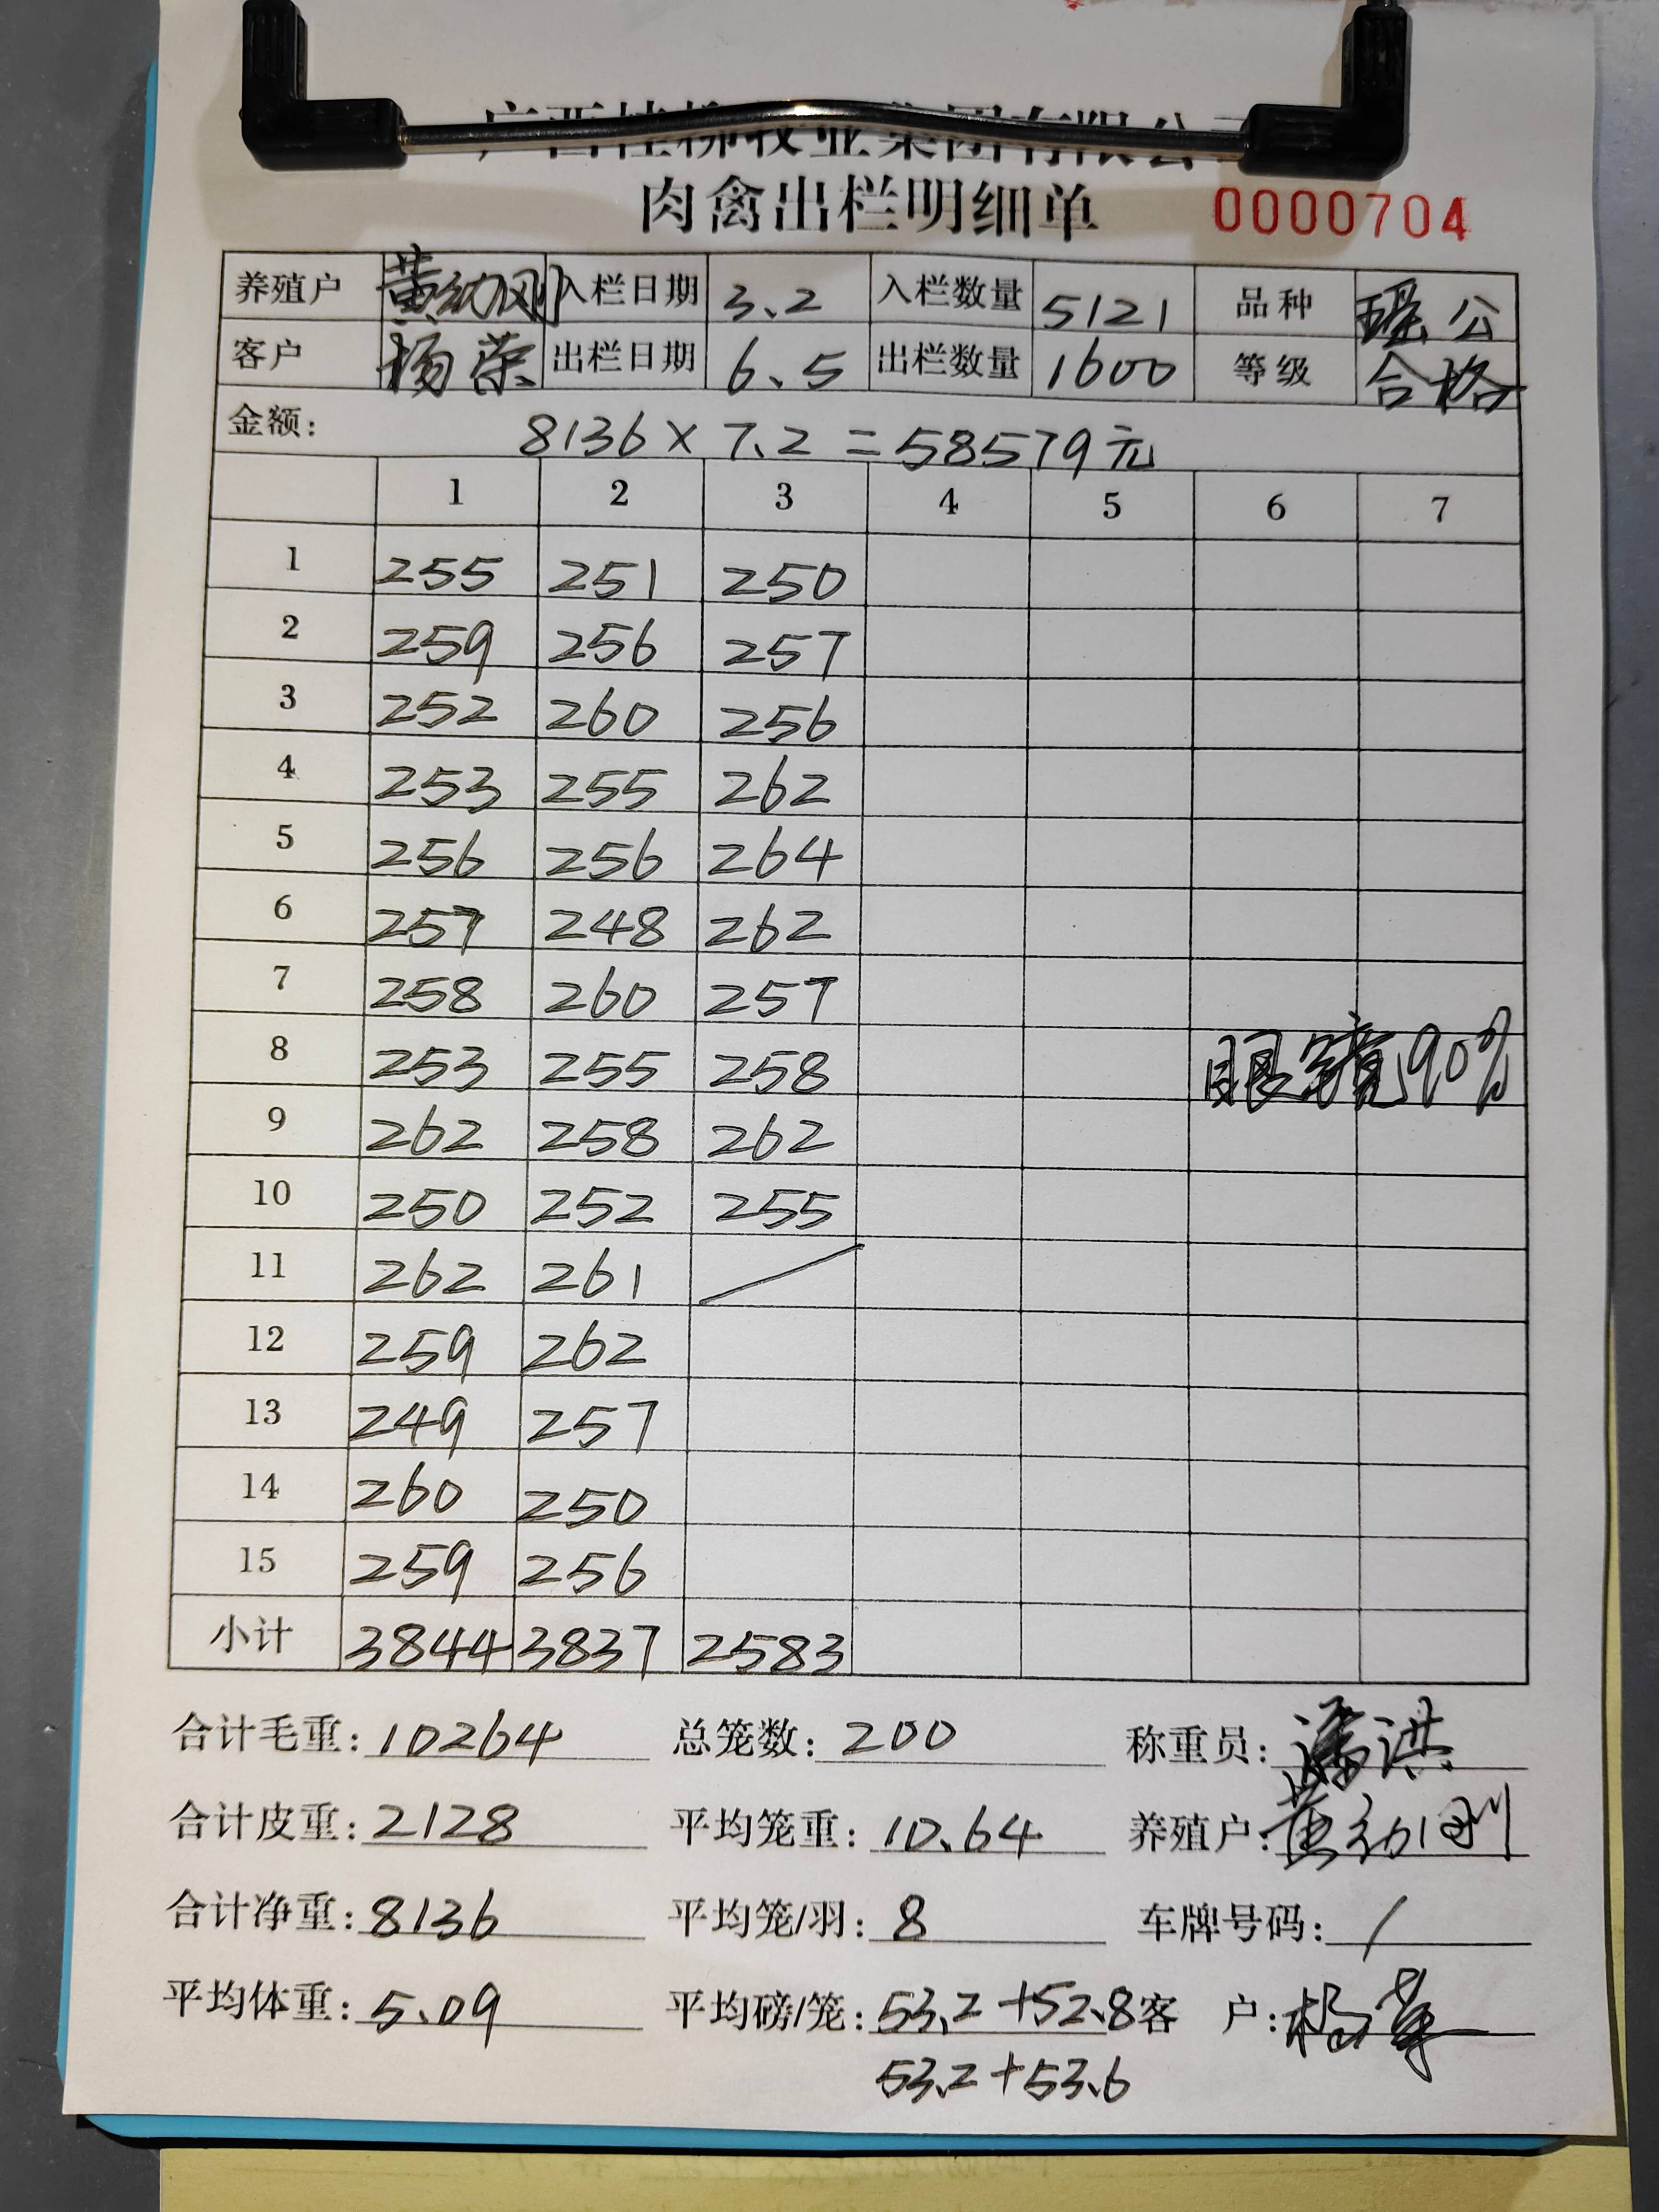 广西桂柳牧业集团有限公司
肉禽出栏明细单 0000704
养殖户 黄幼刚 入栏日期 3.2 入栏数量 5121 品种 瑶公
客户 杨荣 出栏日期 6.5 出栏数量 1600 等级 合格
金额: 8136×7.2=58579元
1 2 3 4 5 6 7
1 255 251 250
2 259 256 257
3 252 260 256
4 253 255 262
5 256 256 264
6 257 248 262
7 258 260 257
8 253 255 258 眼睛90%
9 262 258 262
10 250 252 255
11 262 261 /
12 259 262
13 249 257
14 260 250
15 259 256
小计 3844 3837 2583
合计毛重: 10264 总笼数: 200 称重员: 潘洪
合计皮重: 2128 平均笼重: 10.64 养殖户: 黄幼刚
合计净重: 8136 平均笼/羽: 8 车牌号码: /
平均体重: 5.09 平均磅/笼: 53.2+52.8 客 户: 杨荣
53.2+53.6